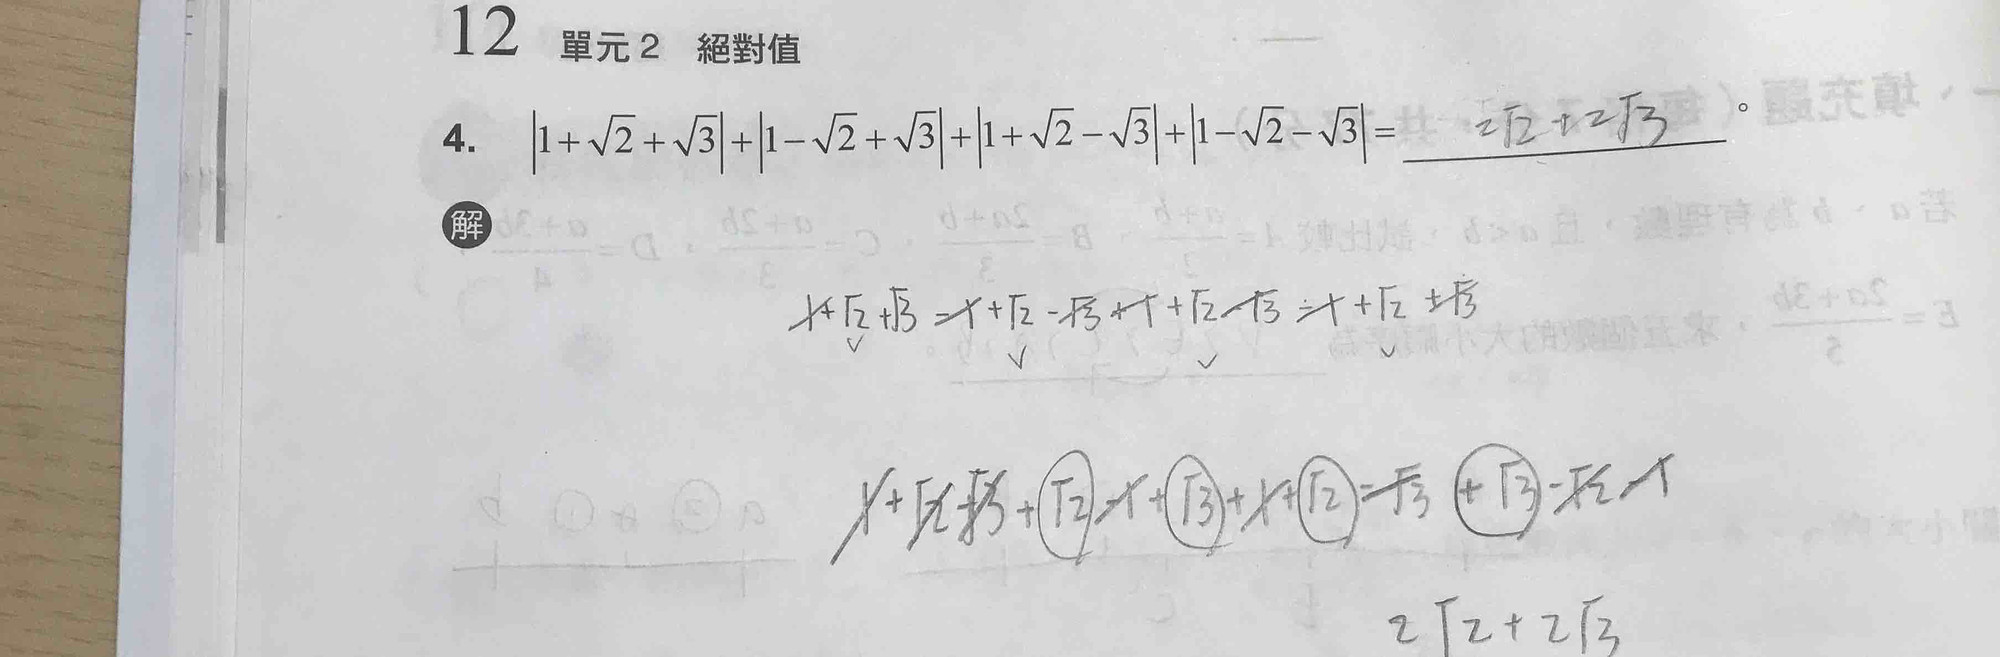 12 單元2 絕對值
4. |1+√2+√3|+|1-√2+√3|+|1+√2-√3|+|1-√2-√3|= 2√2+2√3 。
解
1+√2+√3 -1+√2-√3+1+√2-√3-1+√2+√3
1+√2+√3+√2-1+√3+1+√2-√3+√3-√2-1
2√2+2√3